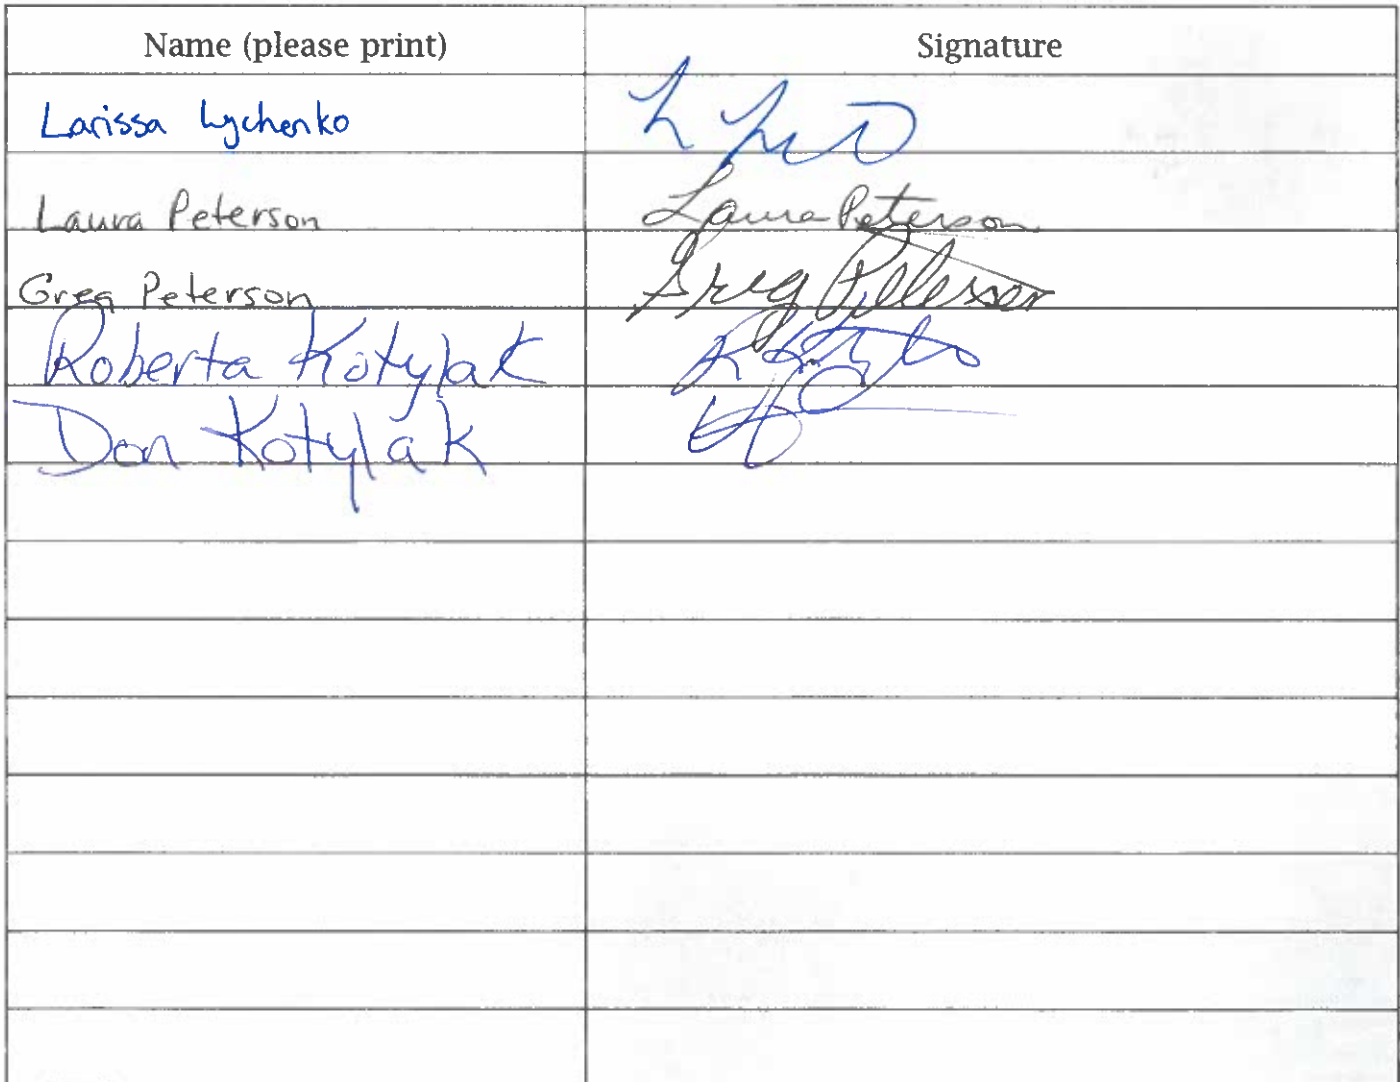 Name (please print) Signature
Larissa Lychenko
Laura Peterson Laura Peterson
Greg Peterson Greg Peterson
Roberta Kotylak
Don Kotylak